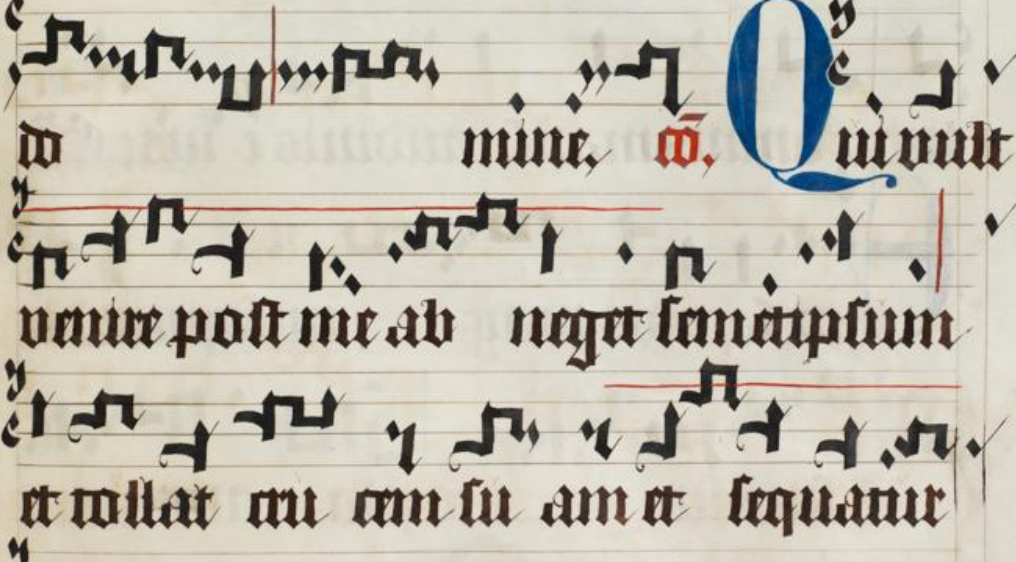 do mine. cō. Qui vult
venire post me ab neget semetipsum
et tollat cru cem su am et sequatur